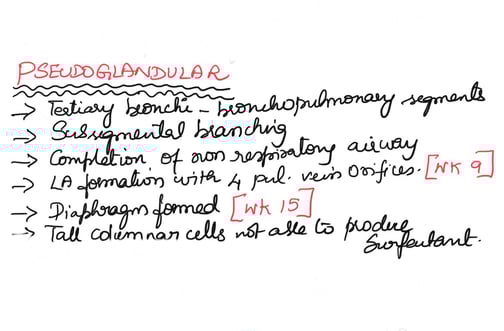 PSEUDOGLANDULAR
→ Tertiary bronchi - bronchopulmonary segments
→ Subsegmental branching
→ Completion of non respiratory airway
→ LA formation with 4 pul. vein orifices. [WK 9]
→ Diaphragm formed [WK 15]
→ Tall columnar cells not able to produce
surfeutant.